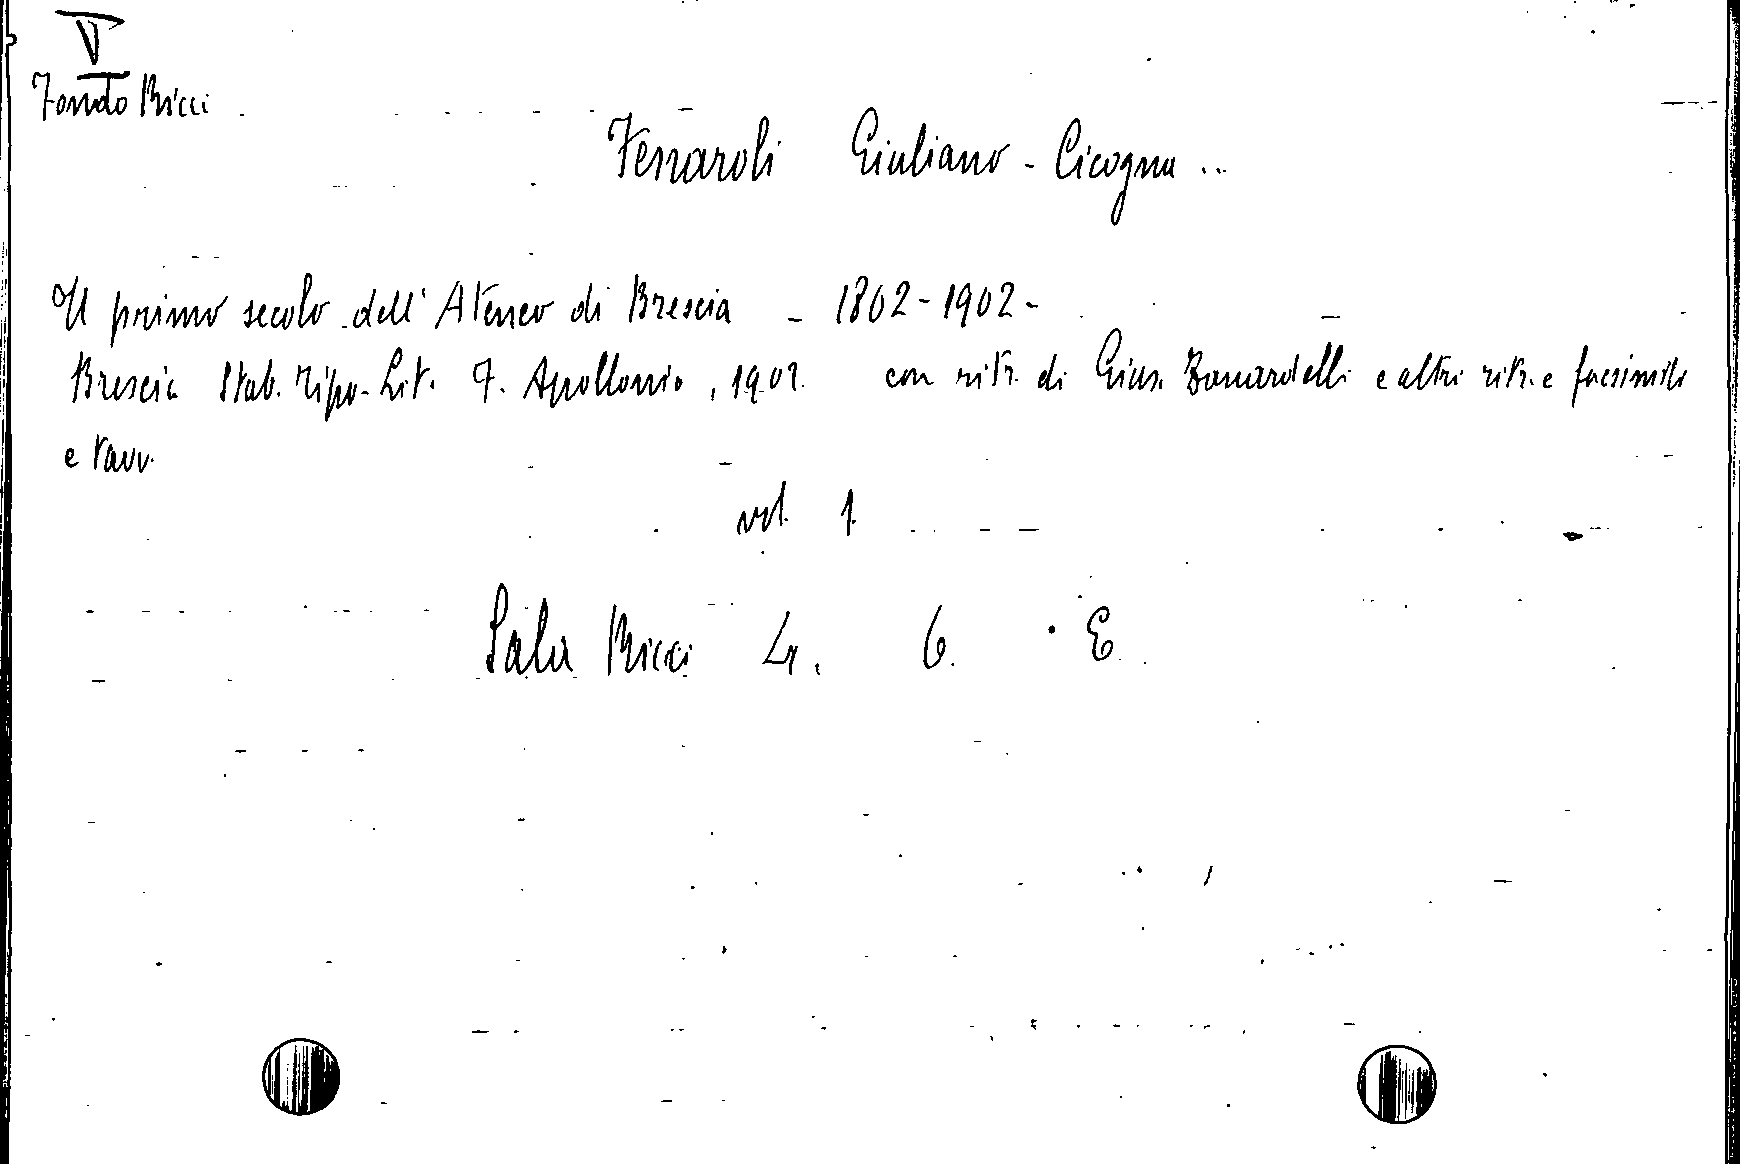 V
Fondo Ricci
Fenaroli Giuliano - Cicogna ..
Il primo secolo dell'Ateneo di Brescia - 1802-1902-
Brescia Stab. Tipo-Lit. F. Apollonio, 1902. con ritr. di Gius. Zanardelli e altri ritr. e facsimili
e tavv.
vol. 1.
Sala Ricci 4. 6. E.